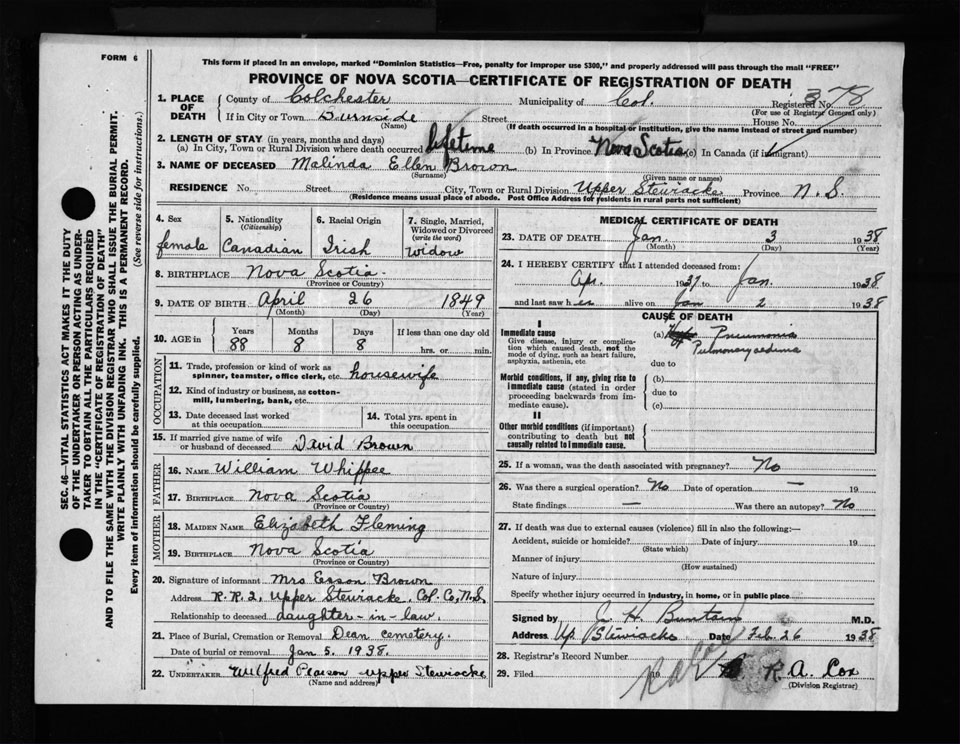 FORM 6
This form if placed in an envelope, marked "Dominion Statistics—Free, penalty for improper use $300," and properly addressed will pass through the mail "FREE"
PROVINCE OF NOVA SCOTIA—CERTIFICATE OF REGISTRATION OF DEATH
SEC. 46—VITAL STATISTICS ACT MAKES IT THE DUTY
OF THE UNDERTAKER OR PERSON ACTING AS UNDER-
TAKER TO OBTAIN ALL THE PARTICULARS REQUIRED
IN THE "CERTIFICATE OF REGISTRATION OF DEATH"
AND TO FILE THE SAME WITH THE DIVISION REGISTRAR WHO SHALL ISSUE THE BURIAL PERMIT.
WRITE PLAINLY WITH UNFADING INK. THIS IS A PERMANENT RECORD.
Every item of information should be carefully supplied. (See reverse side for instructions.)
1. PLACE OF DEATH
County of Colchester Municipality of Col. Registered No. 378
(For use of Registrar General only)
If in City or Town Burnside Street House No.
(Name) (If death occurred in a hospital or institution, give the name instead of street and number)
2. LENGTH OF STAY (in years, months and days)
(a) In City, Town or Rural Division where death occurred lifetime (b) In Province Nova Scotia (c) In Canada (if immigrant)
3. NAME OF DECEASED Malinda Ellen Brown
(Surname) (Given name or names)
RESIDENCE No. Street City, Town or Rural Division Upper Stewiacke Province N. S.
(Residence means usual place of abode. Post Office Address for residents in rural parts not sufficient)
4. Sex
female
5. Nationality
(Citizenship)
Canadian
6. Racial Origin
Irish
7. Single, Married,
Widowed or Divorced
(write the word)
Widow
8. BIRTHPLACE Nova Scotia
(Province or Country)
9. DATE OF BIRTH April 26 1849
(Month) (Day) (Year)
10. AGE in
Years Months Days If less than one day old
88 8 8 hrs. or min.
OCCUPATION
11. Trade, profession or kind of work as
spinner, teamster, office clerk, etc. housewife
12. Kind of industry or business, as cotton-
mill, lumbering, bank, etc.
13. Date deceased last worked
at this occupation
14. Total yrs. spent in
this occupation
15. If married give name of wife
or husband of deceased David Brown
FATHER
16. NAME William Whippee
17. BIRTHPLACE Nova Scotia
(Province or Country)
MOTHER
18. MAIDEN NAME Elizabeth Fleming
19. BIRTHPLACE Nova Scotia
(Province or Country)
20. Signature of informant Mrs Esson Brown
Address R. R. 2, Upper Stewiacke, Col. Co, N.S.
Relationship to deceased daughter-in-law.
21. Place of Burial, Cremation or Removal Dean cemetery.
Date of burial or removal Jan 5. 1938.
22. UNDERTAKER Wilfred Pearson Upper Stewiacke
(Name and address)
MEDICAL CERTIFICATE OF DEATH
23. DATE OF DEATH Jan. 3 1938
(Month) (Day) (Year)
24. I HEREBY CERTIFY that I attended deceased from:
Apr. 1937 to Jan. 1938
and last saw her alive on Jan 2 1938
CAUSE OF DEATH
I
Immediate cause
Give disease, injury or complica-
tion which caused death, not the
mode of dying, such as heart failure,
asphyxia, asthenia, etc.
(a) Pneumonia
Pulmonary oedema
due to
Morbid conditions, if any, giving rise to
immediate cause (stated in order
proceeding backwards from im-
mediate cause).
(b)
due to
(c)
II
Other morbid conditions (if important)
contributing to death but not
causally related to immediate cause.
25. If a woman, was the death associated with pregnancy? No
26. Was there a surgical operation? No Date of operation — 19
State findings — Was there an autopsy? No
27. If death was due to external causes (violence) fill in also the following:—
Accident, suicide or homicide? Date of injury 19
(State which)
Manner of injury
(How sustained)
Nature of injury
Specify whether injury occurred in industry, in home, or in public place
Signed by H Buntain M.D.
Address Up Stewiacke Date Feb. 26 1938
28. Registrar's Record Number
29. Filed 19 R. A. Cox
(Division Registrar)